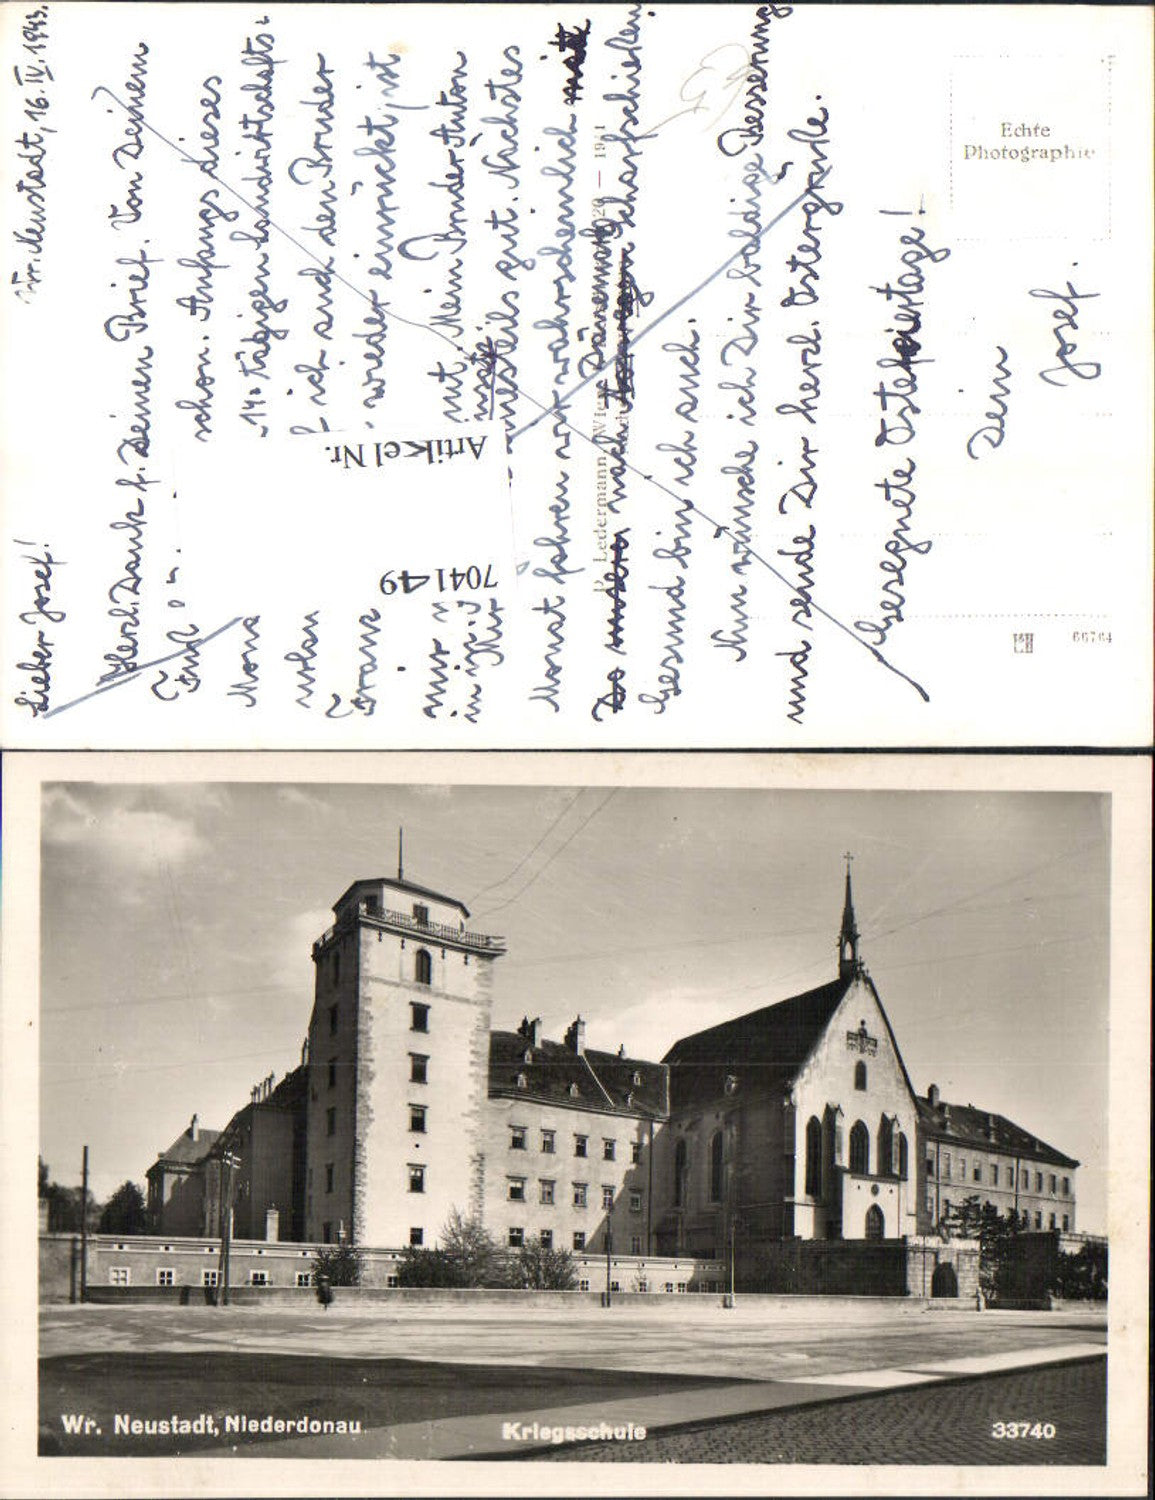 Wr. Neustadt, 16. IV. 1943.
Lieber Josef!
Herzl. Dank f. Deinen Brief. Von Deinem
schon. Anfangs dieses
14 tägigen Landwirtschafts-
ich auch den Bruder
Franz wieder einrückt, ist
nur mut. Mein Bruder Anton
in
Mir meistenteils gut. Nächstes
Monat fahren wir wahrscheinlich
nach Scharfschießen.
Gesund bin ich auch.
Nun wünsche ich Dir baldige Besserung
und sende Dir herzl. Ostergrüße.
Gesegnete Osterfeiertage!
Dein
Josef.
Artikel Nr.
704149
P. Ledermann, Wien 1941
Echte
Photographie
66764
Wr. Neustadt, Niederdonau.
Kriegsschule
33740